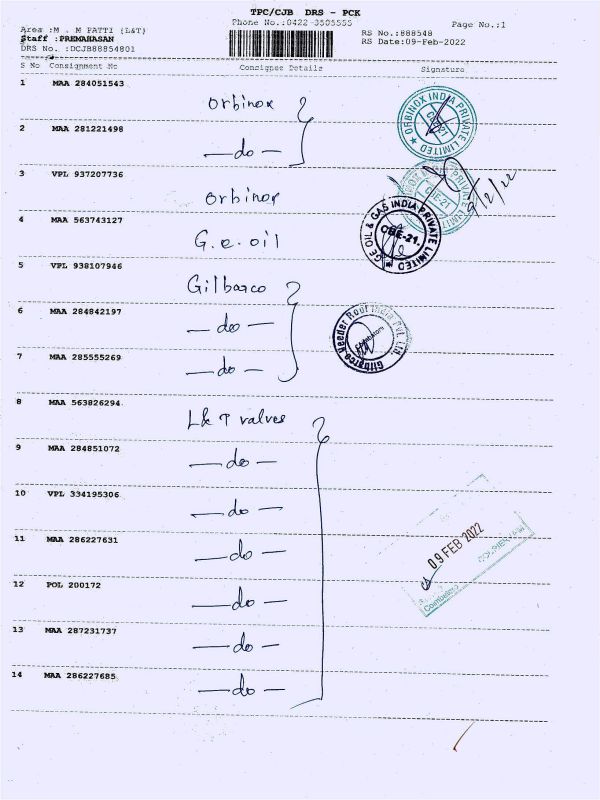 TPC/CJB DRS - PCK
Phone No.:0422-3505555
Page No.:1
Area :M . M PATTI (L&T)
Staff :PREMAHASAN
DRS No. :DCJB88854801
RS No.:888548
RS Date:09-Feb-2022
S No Consignment No Consignee Details Signature
1 MAA 284051543 Orbinox
2 MAA 281221498 —do—
3 VPL 937207736 Orbinox
4 MAA 563743127 G.e. oil
5 VPL 938107946 Gilbarco
6 MAA 284842197 —do—
7 MAA 285555269 —do—
8 MAA 563826294 L& T valves
9 MAA 284851072 —do—
10 VPL 334195306 —do—
11 MAA 286227631 —do—
12 POL 200172 —do—
13 MAA 287231737 —do—
14 MAA 286227685 —do—
ORBINOX INDIA PRIVATE LIMITED
CBE-21
9/2/22
GE OIL & GAS INDIA PRIVATE LIMITED
CBE-21.
Gilbarco Veeder Root India Pvt. Ltd.
09 FEB 2022
Coimbatore